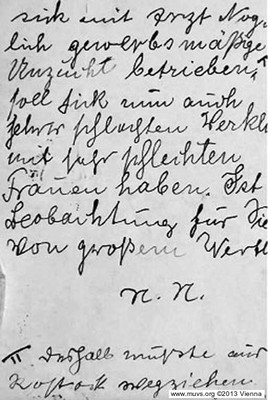 sich mit Arzt Nog
lich gewerbsmäßige
Unzucht betrieben, II
soll sich nun auch
sehr schlechten Verkl
mit sehr schlechten
Frauen haben. Ist
Beobachtung für Sie
von großem Wert
N. N.
II Deshalb mußte aus
Rostock wegziehen.
www.muvs.org ©2013 Vienna